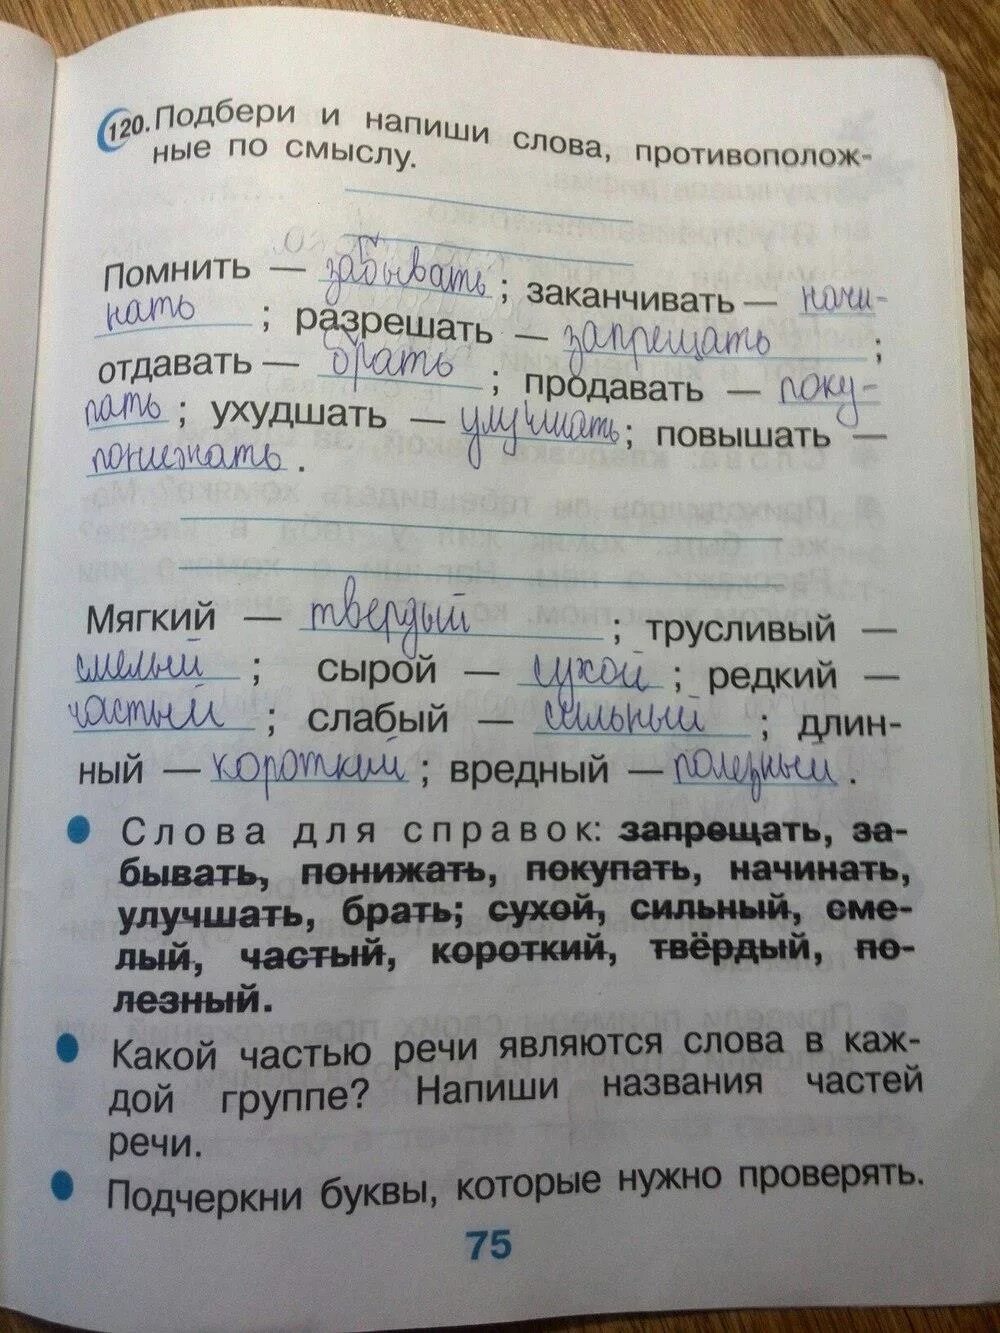 120. Подбери и напиши слова, противополож-
ные по смыслу.
Помнить — забывать ; заканчивать — начи-
нать ; разрешать — запрещать ;
отдавать — брать ; продавать — поку-
пать ; ухудшать — улучшать ; повышать —
понижать .
Мягкий — твердый ; трусливый —
смелый ; сырой — сухой ; редкий —
частый ; слабый — сильный ; длин-
ный — короткий ; вредный — полезный .
Слова для справок: запрещать, за-
бывать, понижать, покупать, начинать,
улучшать, брать; сухой, сильный, сме-
лый, частый, короткий, твёрдый, по-
лезный.
Какой частью речи являются слова в каж-
дой группе? Напиши названия частей
речи.
Подчеркни буквы, которые нужно проверять.
75